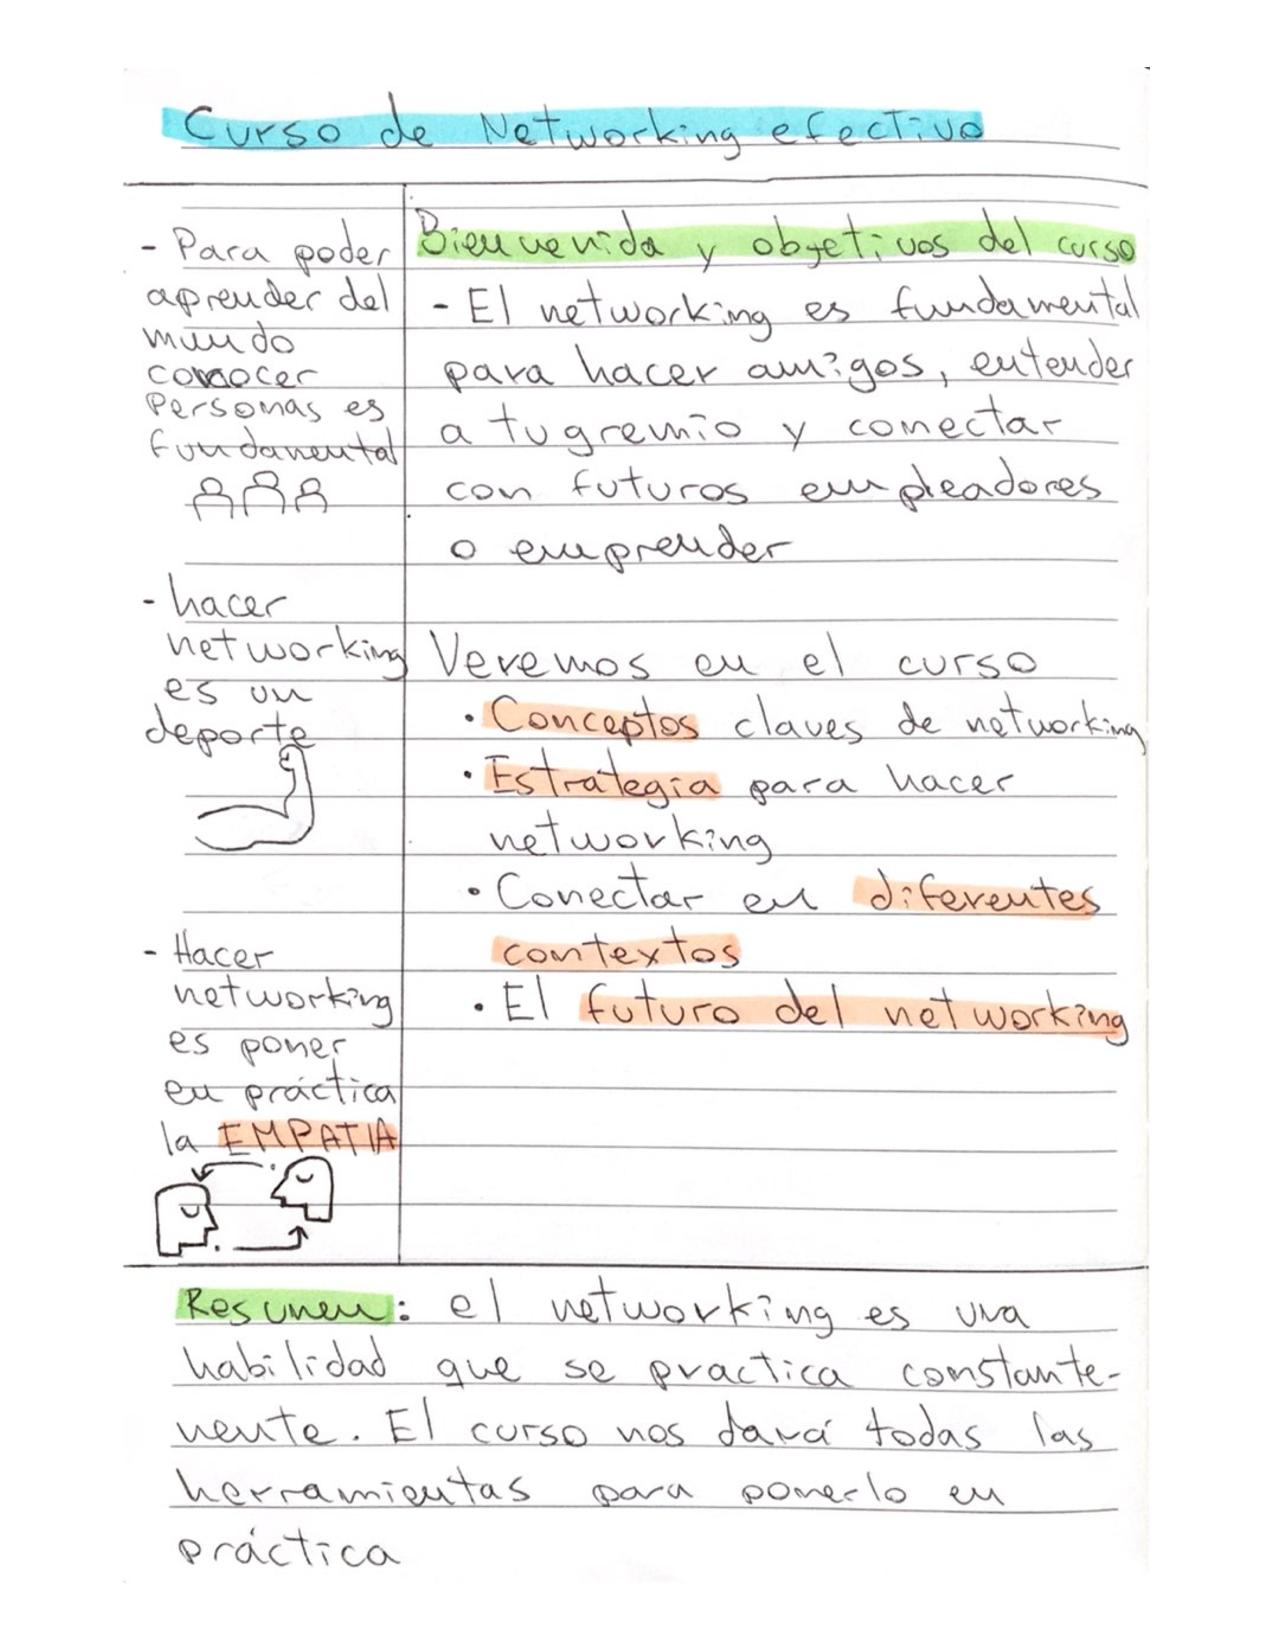 Curso de Networking efectivo
- Para poder
aprender del
mundo
conocer
Personas es
fundamental
- hacer
networking
es un
deporte
- Hacer
networking
es poner
en práctica
la EMPATIA
Bienvenida y objetivos del curso
- El networking es fundamental
para hacer amigos, entender
a tu gremio y conectar
con futuros empleadores
o emprender
Veremos en el curso
• Conceptos claves de networking
• Estrategia para hacer
networking
• Conectar en diferentes
contextos
• El futuro del networking
Resumen: el networking es una
habilidad que se practica constante-
mente. El curso nos dará todas las
herramientas para ponerlo en
práctica